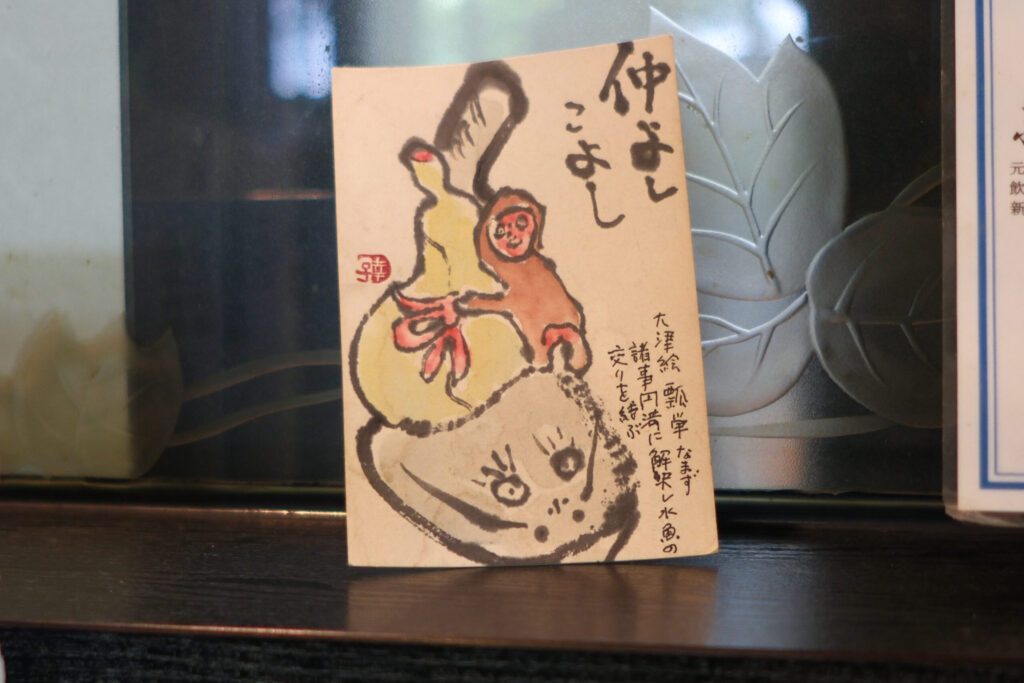 仲よし
こよし
大津絵 瓢単なまず
諸事円満に解決し水魚の
交りを結ぶ
幸子
元
飲
新